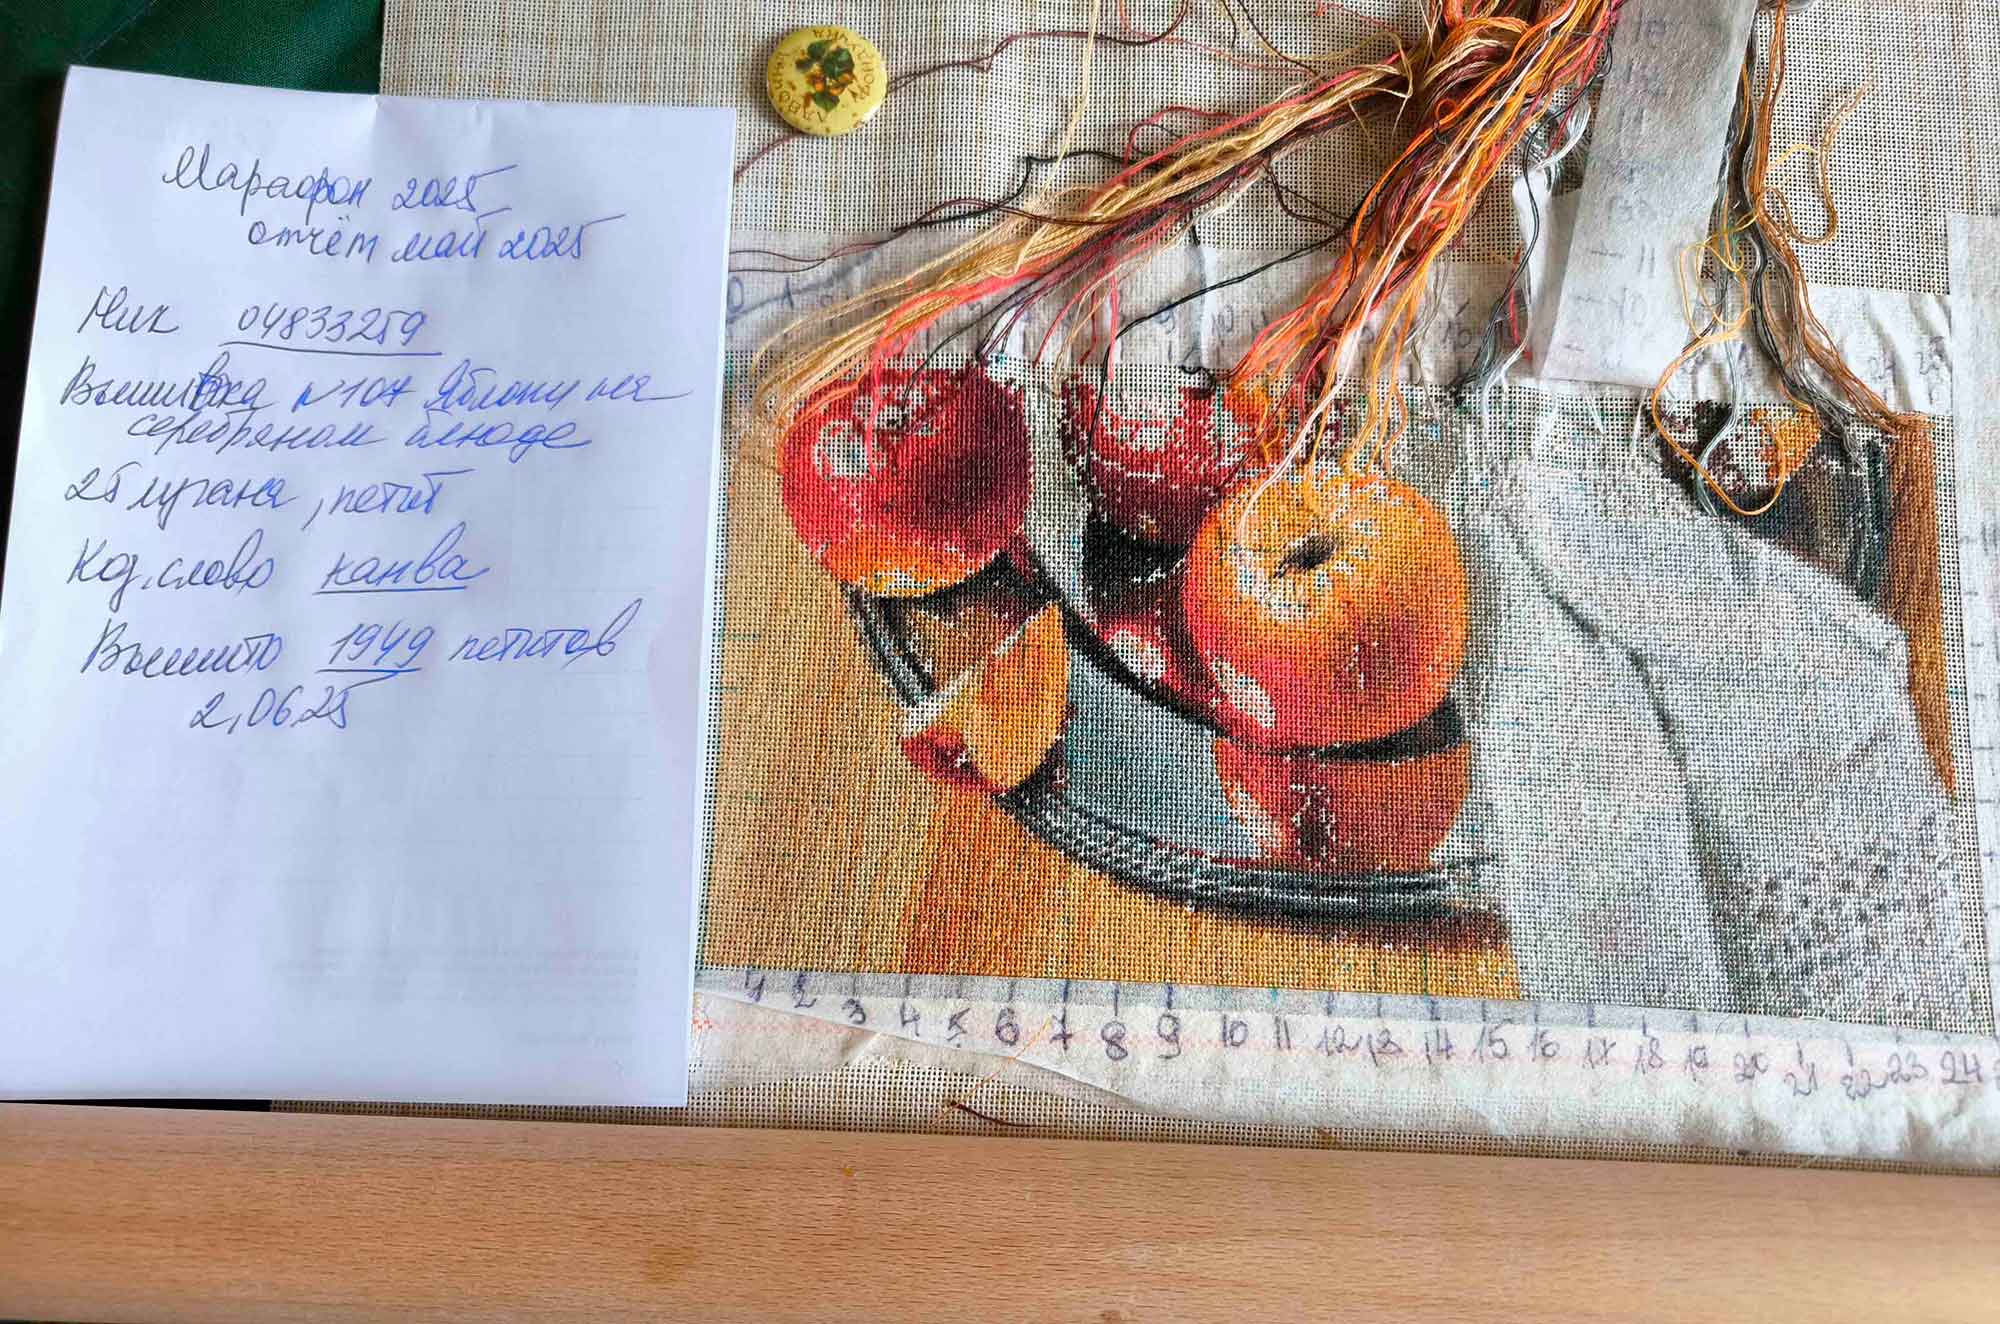 Марафон 2025
отчёт май 2025
Ник 04833259
Вышивка №107 Яблоки на
серебряном блюде
25 лугана, петит
Код. слово канва
Вышито 1949 петитов
2,06.25
1 2 3 4 5 6 7 8 9 10 11 12 13 14 15 16 17 18 19 20 21 22 23 24